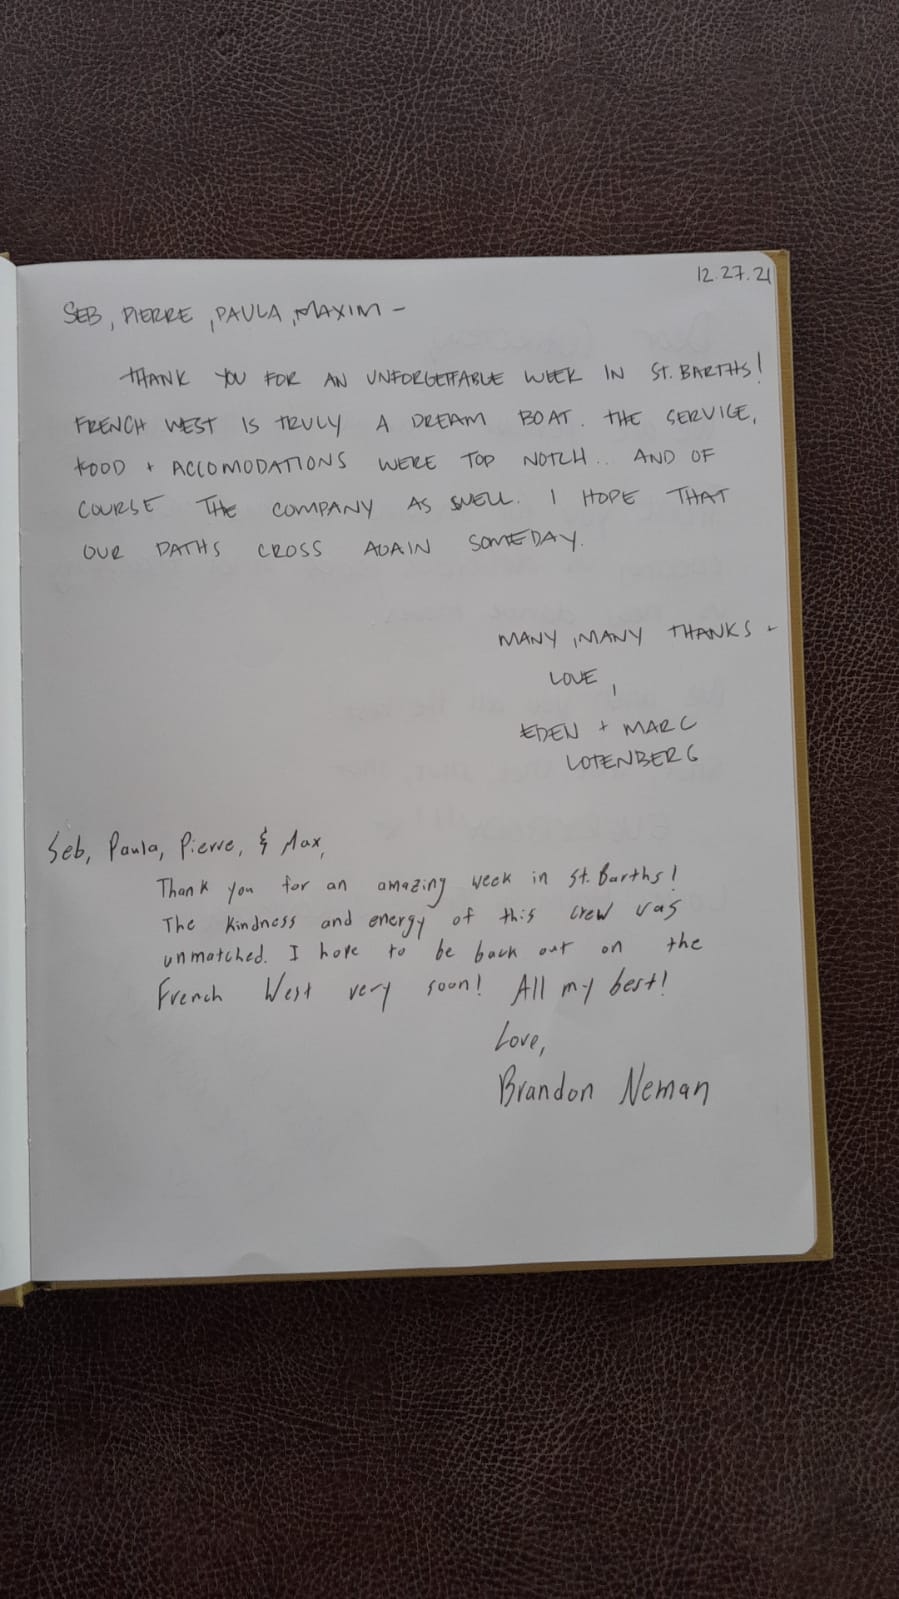 12.27.21
SEB, PIERRE, PAULA, MAXIM –
THANK YOU FOR AN UNFORGETTABLE WEEK IN ST. BARTHS!
FRENCH WEST IS TRULY A DREAM BOAT. THE SERVICE,
FOOD + ACCOMODATIONS WERE TOP NOTCH... AND OF
COURSE THE COMPANY AS WELL. I HOPE THAT
OUR PATHS CROSS AGAIN SOMEDAY.
MANY, MANY THANKS -
LOVE,
EDEN + MARC
LOTENBERG
Seb, Paula, Pierre, & Max,
Thank you for an amazing week in St. Barths!
The kindness and energy of this crew was
unmatched. I hope to be back out on the
French West very soon! All my best!
Love,
Brandon Neman